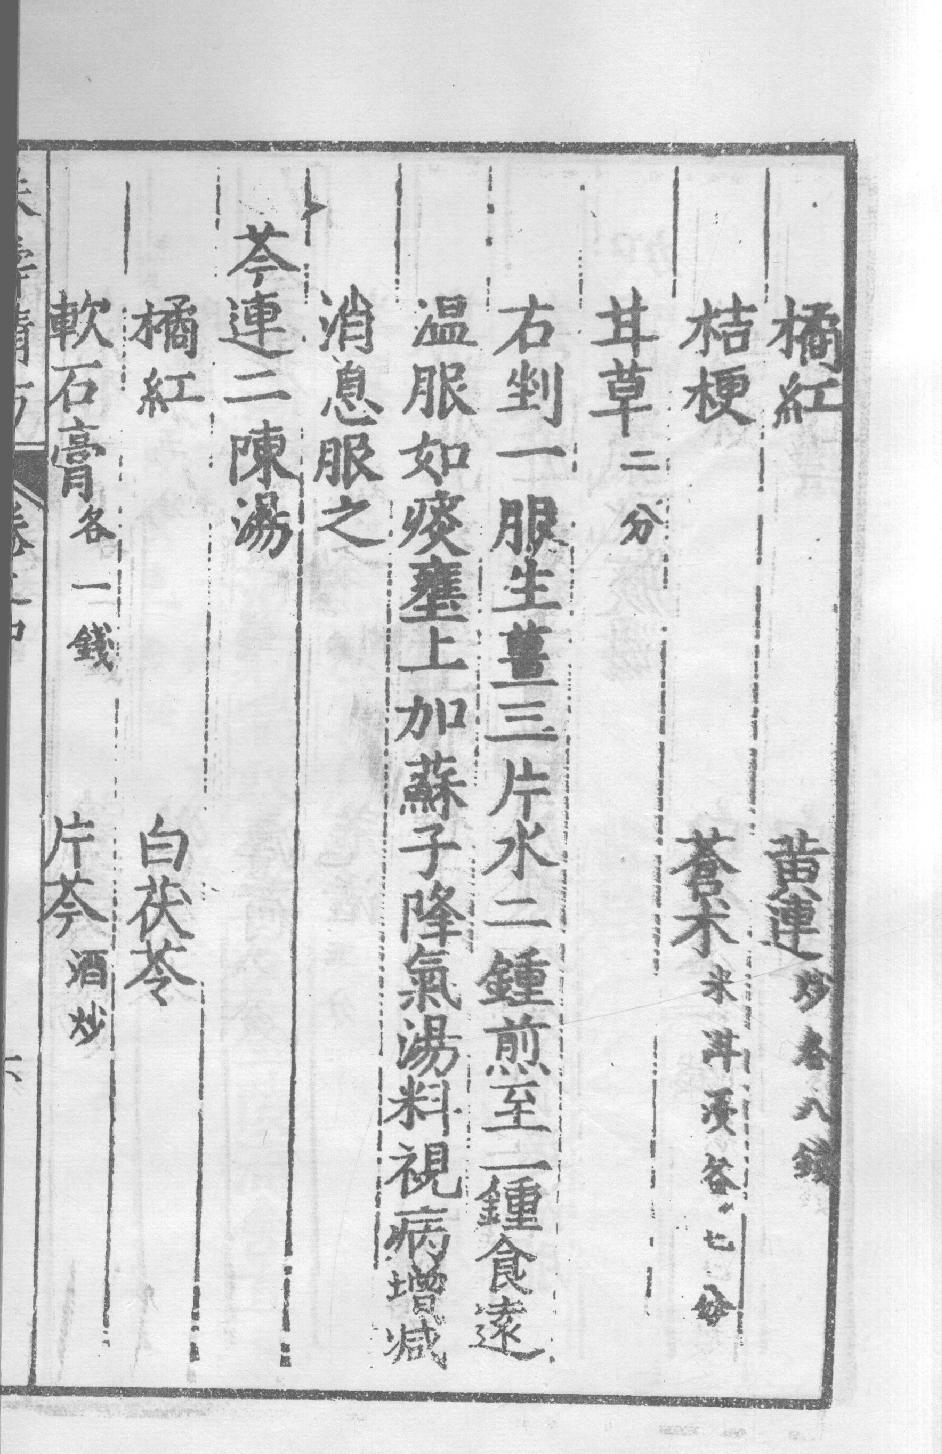 橘紅　黄連炒各八錢
桔梗　蒼术米泔浸各七分
甘草二分
右剉一服生薑三片水二鍾煎至一鍾食遠
温服如痰壅上加蘇子降氣湯料視病增减
消息服之
芩連二陳湯
橘紅　白茯苓
軟石膏各一錢　片芩酒炒